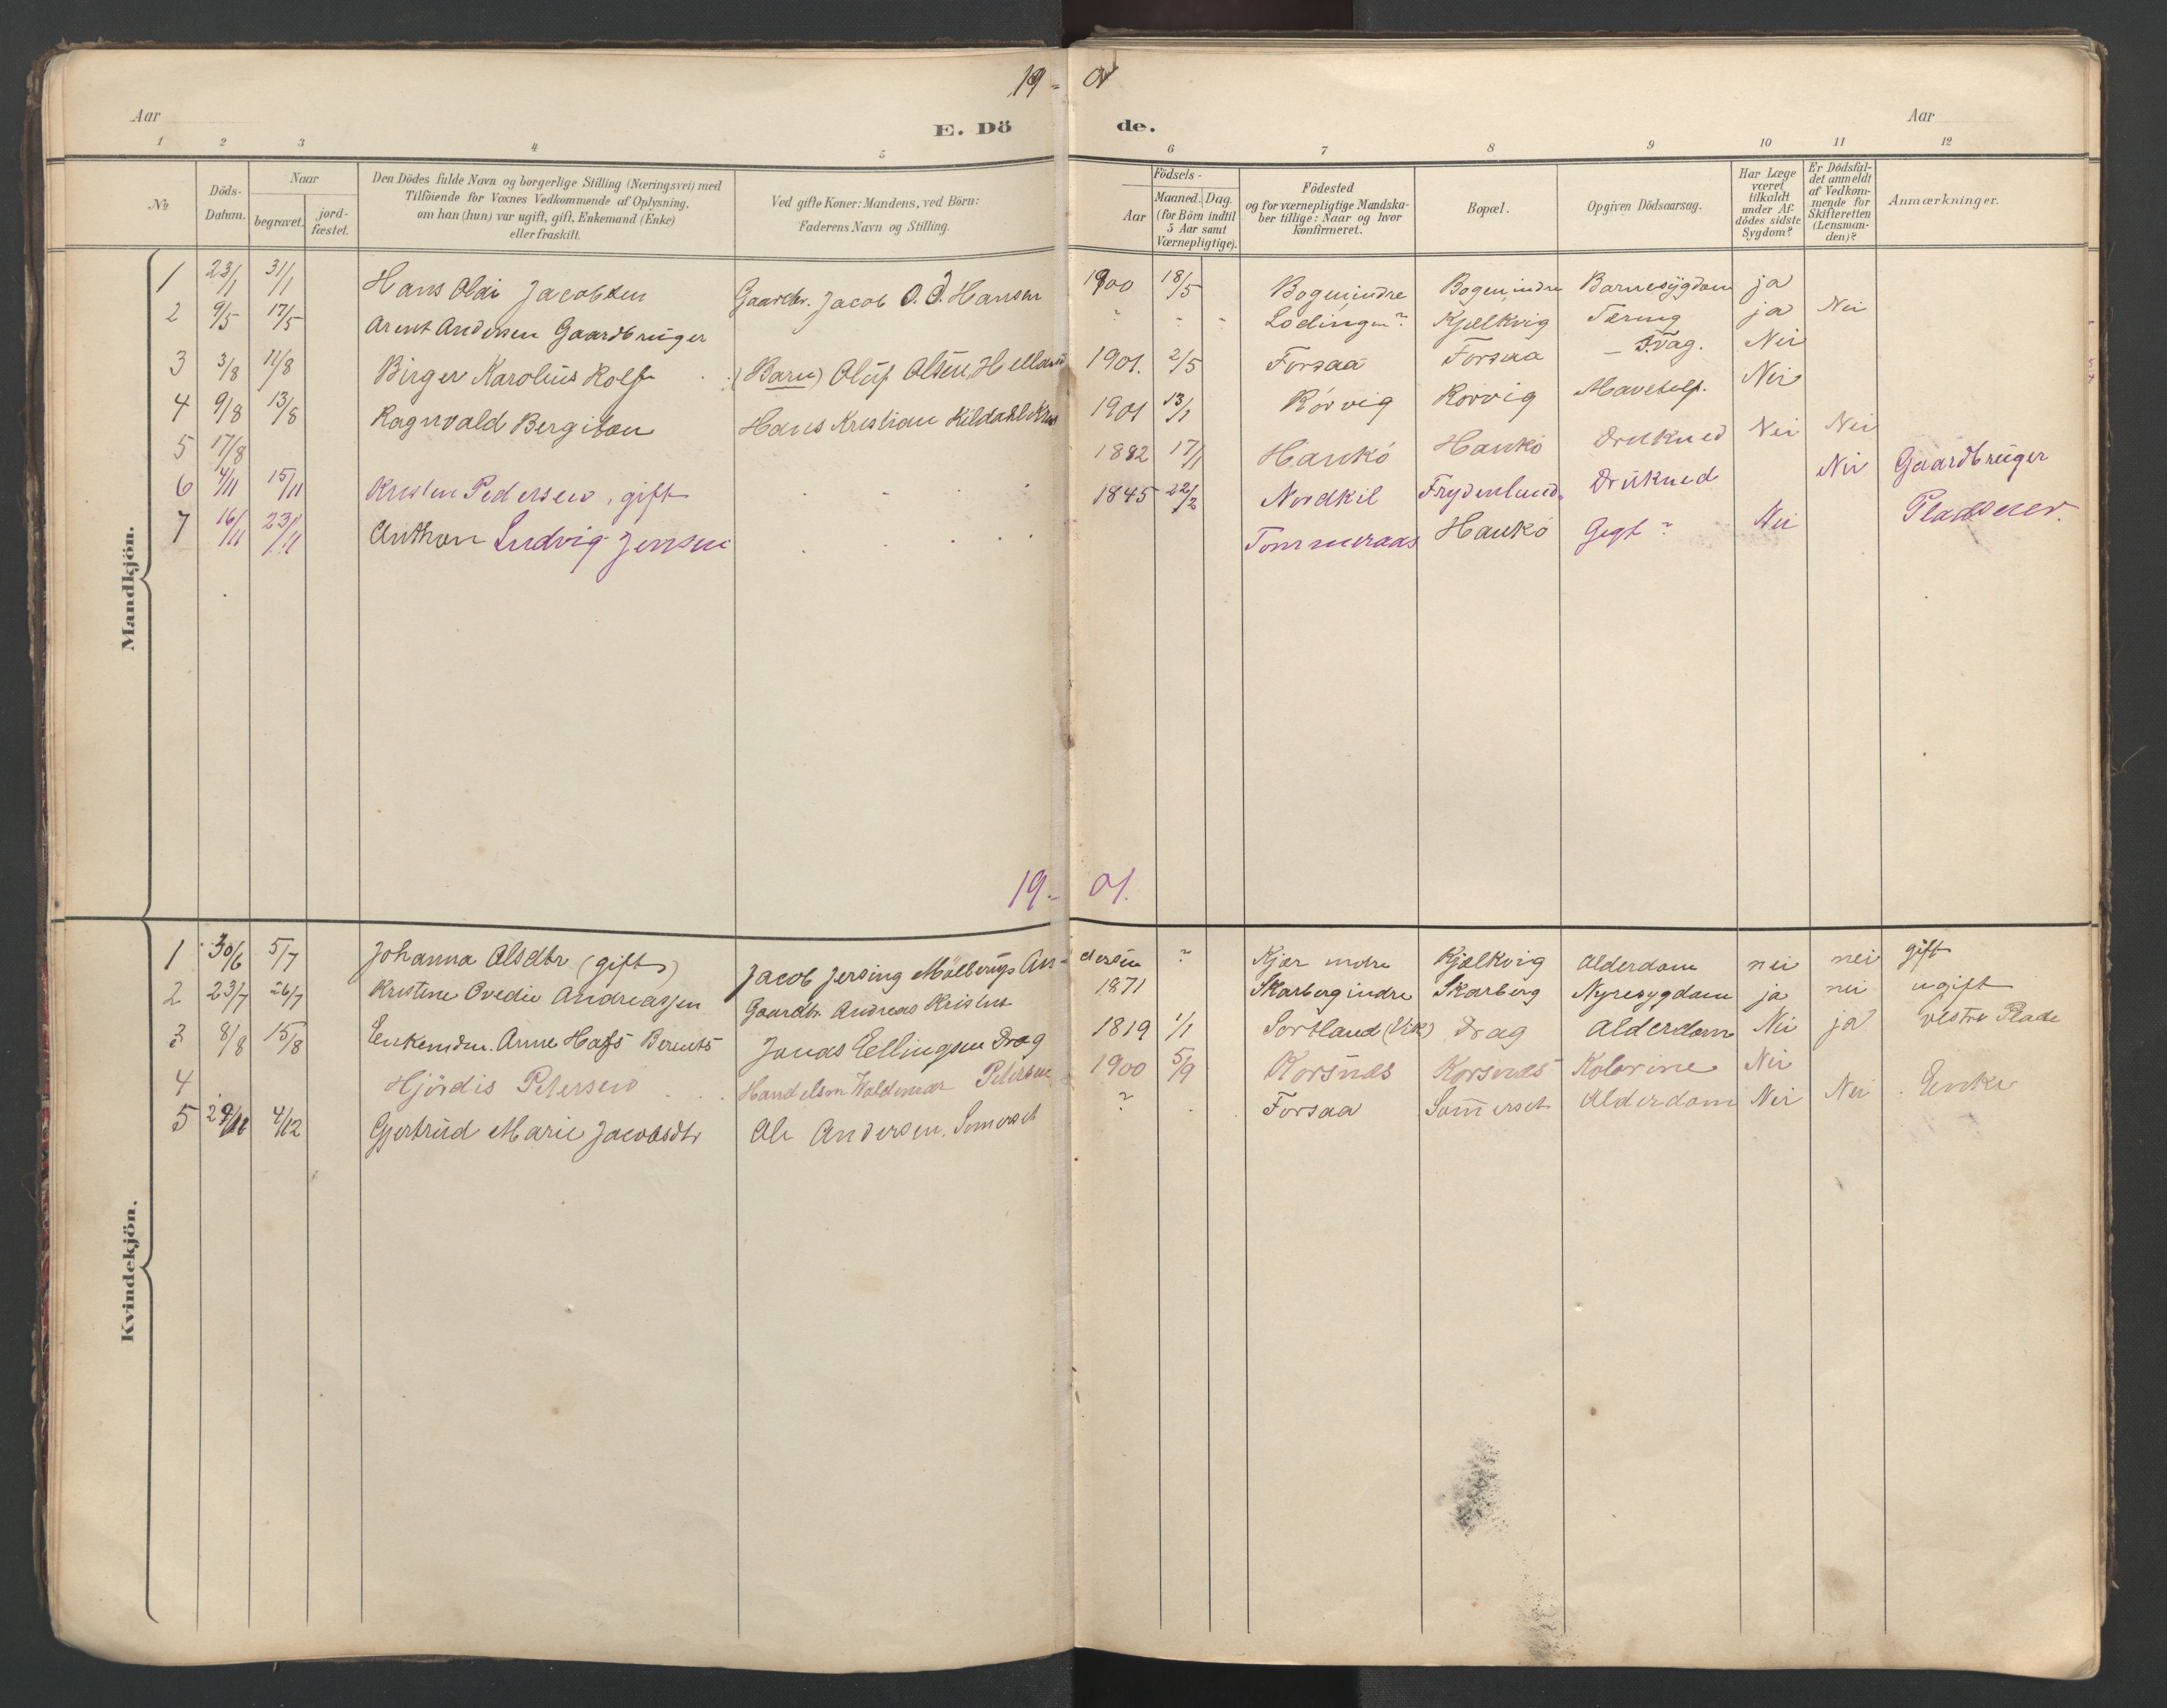 19 - 01
Aar
E. Dö de.
Aar
1 2 3 4 5 6 7 8 9 10 11 12
No
Döds-Datum.
Naar
begravet.
jordfæstet.
Den Dödes fulde Navn og borgerlige Stilling (Næringsvei) med
Tilföiende for Voxnes Vedkommende af Oplysning,
om han (hun) var ugift, gift, Enkemand (Enke)
eller fraskilt.
Ved gifte Koner: Mandens, ved Börn:
Faderens Navn og Stilling.
Födsels-
Aar
Maaned. Dag.
(for Börn indtil
5 Aar samt
Værnepligtige).
Födested
og for værnepligtige Mandska-
ber tillige: Naar og hvor
Konfirmeret.
Bopæl.
Opgiven Dödsaarsag.
Har Læge
været
tilkaldt
under Af-
dödes sidste
Sygdom?
Er Dödsfal-
det anmeldt
af Vedkom-
mende for
Skifteretten
(Lensman-
den)?
Anmærkninger.
Mandkjön.
1 23/1 31/1 Hans Oldi Jacobsen Gaardbr. Jacob O. J. Hansen 1900 18/5 Bogenindre Bogenindre Barnesygdom ja
2 9/5 17/5 Arent Andersen Gaardbruger " - - Lodingen? Kjelkvig Tæring ja Nei
3 3/8 11/8 Birger Karolius Rolf (Barn) Oluf Olsen, 1901. 2/5 Forsaa Forsaa Nei
4 9/8 13/8 Ragnvald Bergiton Hans Kristian Kildahl 1901 13/1 Rörvig Rörvig Nei
5 17/8 1882 17/1 Hankö Hankö Druknet Nei Nei
6 4/11 15/11 Kristen Pedersen, gift 1845 22/2 Nordkil Frydenlund Druknet Nei Gaardbruger
7 16/11 23/11 Anthon Ludvig Jensen Tommeraas Hankö Gigt? Nei
19 - 01.
Kvindekjön.
1 30/6 5/7 Johanna Olsdtr (gift) Jacob Jersing Mölbergs Andersen ? Kjær indre Kjelkvig Alderdom nei nei gift
2 23/7 26/7 Kristine Ovedie Andreassen Gaardbr. Andreas Kristens 1871 Skarberg indre Skarberg Nyresygdom ja nei ugift
3 8/8 15/8 Anne Berents Jonas Ellingsen Drag 1819 1/1 Sortland (Vik) Drag Alderdom Nei ja
4 Hjördis Petersen Handelsm Waldemar Petersen 1900 5/9 Korsnæs Korsnæs Kolerine Nei
5 29/11 4/12 Gjertrud Marie Jacobsdtr Ole Andersen. Somerset ? Forsaa Sommerset Alderdom Nei Nei Enke